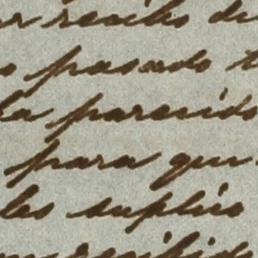 recibo de
pasado
la parecido
para que
les suplico
recibido